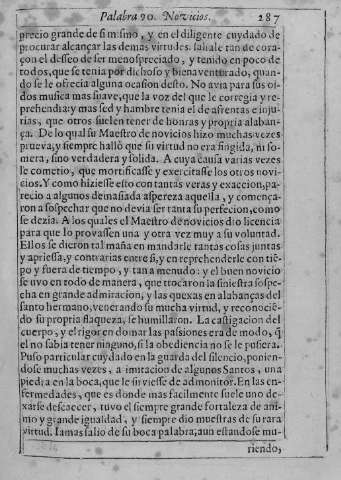 Palabra 90. Novicios. 287
precio grande de si mismo, y en el diligente cuydado de
procurar alcançar las demas virtudes. Saliale tan de cora-
çon el desseo de ser menospreciado, y tenido en poco de
todos, que se tenia por dichoso y bienaventurado, quan-
do se le ofrecia alguna ocasion desto. No avia para sus oi-
dos musica mas suave, que la voz del que le corregia y re-
prehendia: y mas sed y hambre tenia el de afrentas e inju-
rias, que otros suelen tener de honras y propria alaban-
ça. De lo qual su Maestro de novicios hizo muchas vezes
prueva, y siempre halló que su virtud no era fingida, ni so-
mera, sino verdadera y solida. A cuya causa varias vezes
le cometio, que mortificasse y exercitasse los otros novi-
cios. Y como hiziesse esto con tantas veras y exaccion, pa-
recio a algunos demasiada aspereza aquella, y comença-
ron a sospechar que no devia ser tanta su perfecion, como
se dezia. A los quales el Maestro de novicios dio licencia
para que lo provassen una y otra vez muy a su voluntad.
Ellos se dieron tal maña en mandarle tantas cosas juntas
y apriessa, y contrarias entre si, y en reprehenderle con tiē-
po y fuera de tiempo, y tan a menudo: y el buen novicio
se uvo en todo de manera, que trocaron la siniestra sospe-
cha en grande admiracion, y las quexas en alabanças del
santo hermano, venerando su mucha virtud, y reconociē-
do su propria flaqueza, se humillaron. La castigacion del
cuerpo, y el rigor en domar las passiones era de modo, q̃
el no sabia tener ninguno, si la obediencia no se le pusiera.
Puso particular cuydado en la guarda del silencio, ponien-
dose muchas vezes, a imitacion de algunos Santos, una
piedra en la boca, que le sirviesse de admonitor. En las en-
fermedades, que es donde mas facilmente suele uno de-
xarse descaecer, tuvo el siempre grande fortaleza de ani-
mo y grande igualdad, y siempre dio muestras de su rara
virtud. Iamas salio de su boca palabra, aun estandose mu-
riendo,